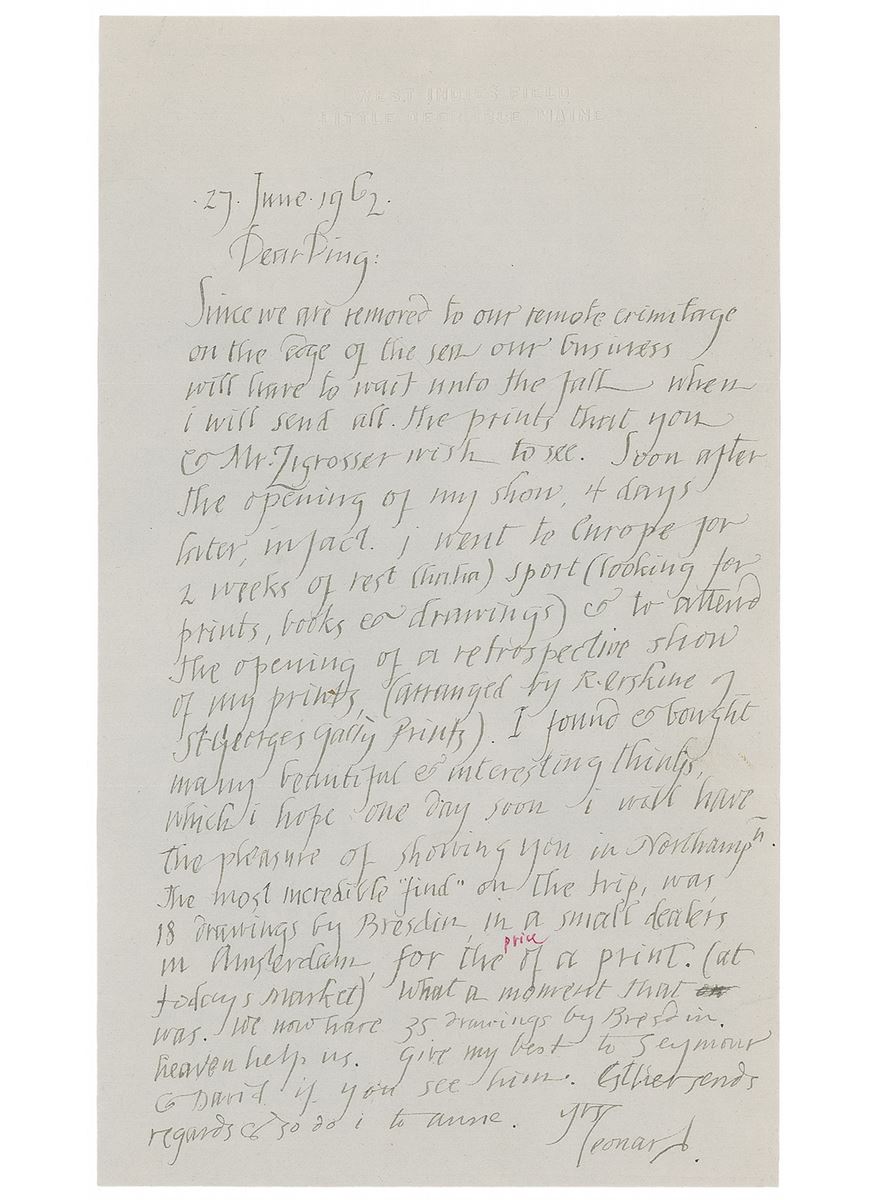 WEST INDIES FIELD
LITTLE DEER ISLE, MAINE
·27· June·1962·
Dear Ping:
Since we are removed to our remote ermitage
on the edge of the sea our business
will have to wait unto the fall when
i will send all. the prints that you
& Mr. Zigrosser wish to see. Soon after
the opening of my show, 4 days
later, in fact. i went to Europe for
2 weeks of rest (haha) sport (looking for
prints, books & drawings) & to attend
the opening of a retrospective show
of my prints, (arranged by R. erskine of
St George's Gally Prints). I found & bought
many beautiful & interesting things,
which i hope one day soon i will have
the pleasure of showing you in Northampn.
The most incredible "find" on the trip, was
18 drawings by Bresdin, in a small dealers
in Amsterdam, for the price of a print. (at
todays market) What a moment that
was. We now have 35 drawings by Bresdin.
heaven help us. Give my best to Seymour
& David if you see him. Esther sends
regards & so do i to anne. yrs
Leonard.